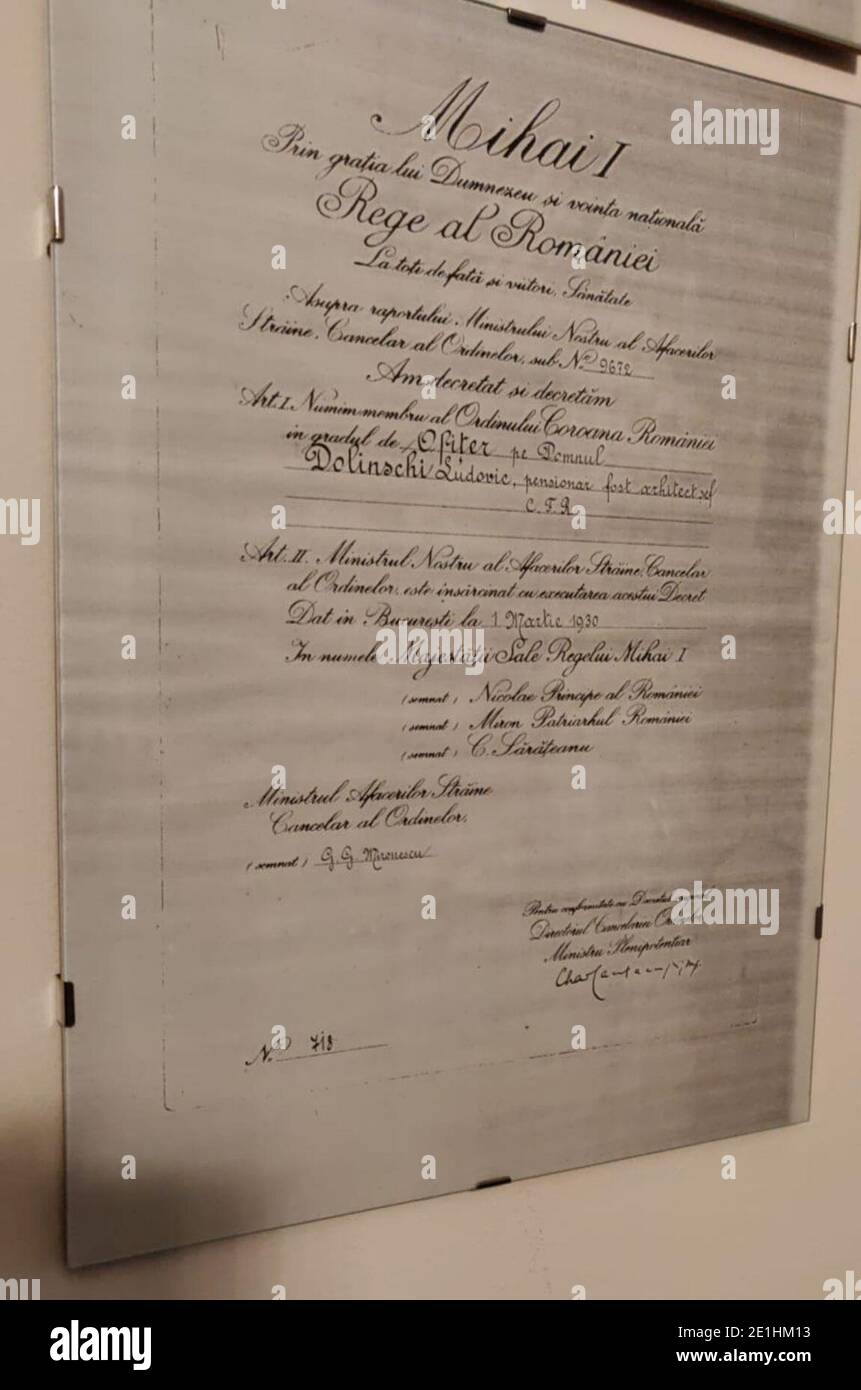 Mihai I
Prin grația lui Dumnezeu si voința națională
Rege al României
La toți de față si viitori, Sănătate
Asupra raportului Ministrului Nostru al Afacerilor
Străine, Cancelar al Ordinelor, sub No 9672
Am decretat si decretăm
Art. I. Numim membru al Ordinului Coroana României
in gradul de Ofiter pe Domnul
Dolinschi Ludovic, pensionar fost arhitect sef
C.F.R
Art. II. Ministrul Nostru al Afacerilor Străine, Cancelar
al Ordinelor, este însărcinat cu executarea acestui Decret
Dat in Bucuresti la 1 Martie 1930
In numele Majestații Sale Regelui Mihai I
(semnat) Nicolae Principe al României
(semnat) Miron Patriarhul României
(semnat) C. Sărățeanu
Ministrul Afacerilor Străine
Cancelar al Ordinelor,
(semnat) G. G. Mironescu
Pentru conformitate cu Decretul
Directorul Cancelariei
Ministru Plenipotentiar
No 718
alamy
Image ID: 2E1HM13
www.alamy.com